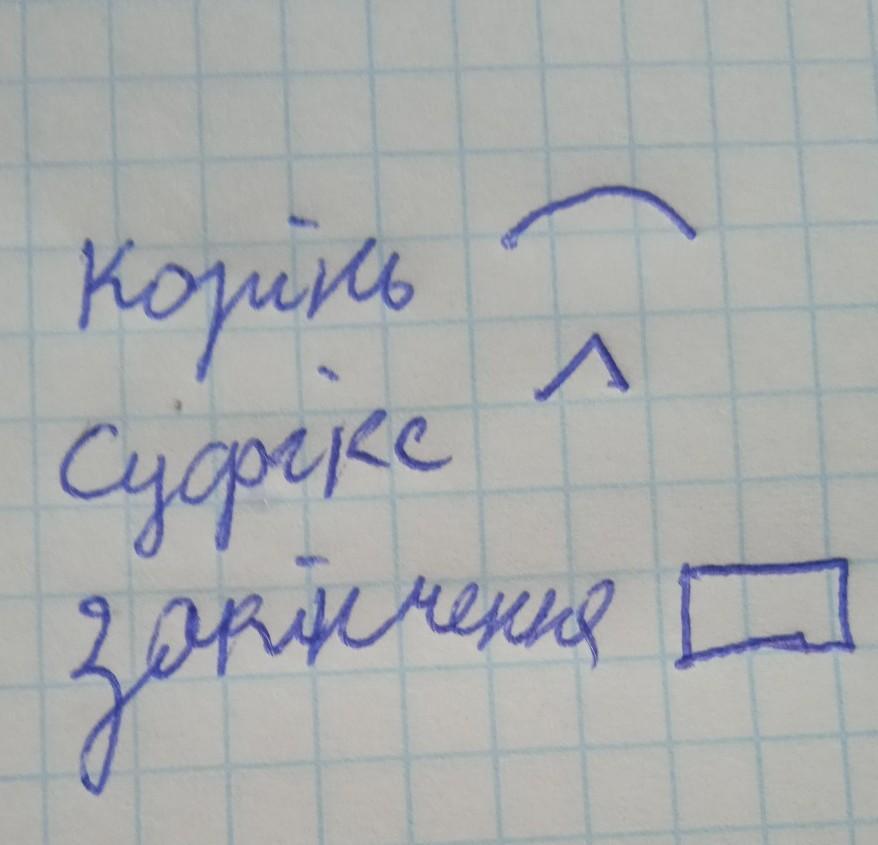 корінь
суфікс
закінчення